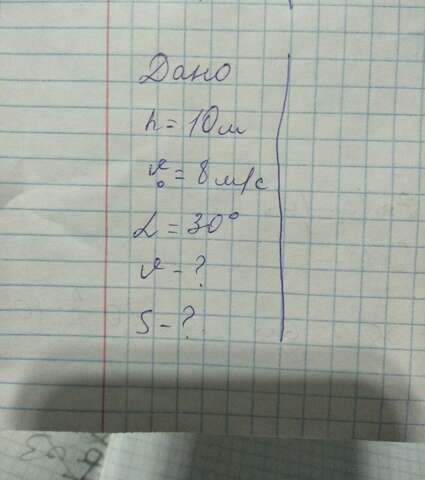 Дано
h = 10 м
v₀ = 8 м/с
α = 30°
v - ?
S - ?